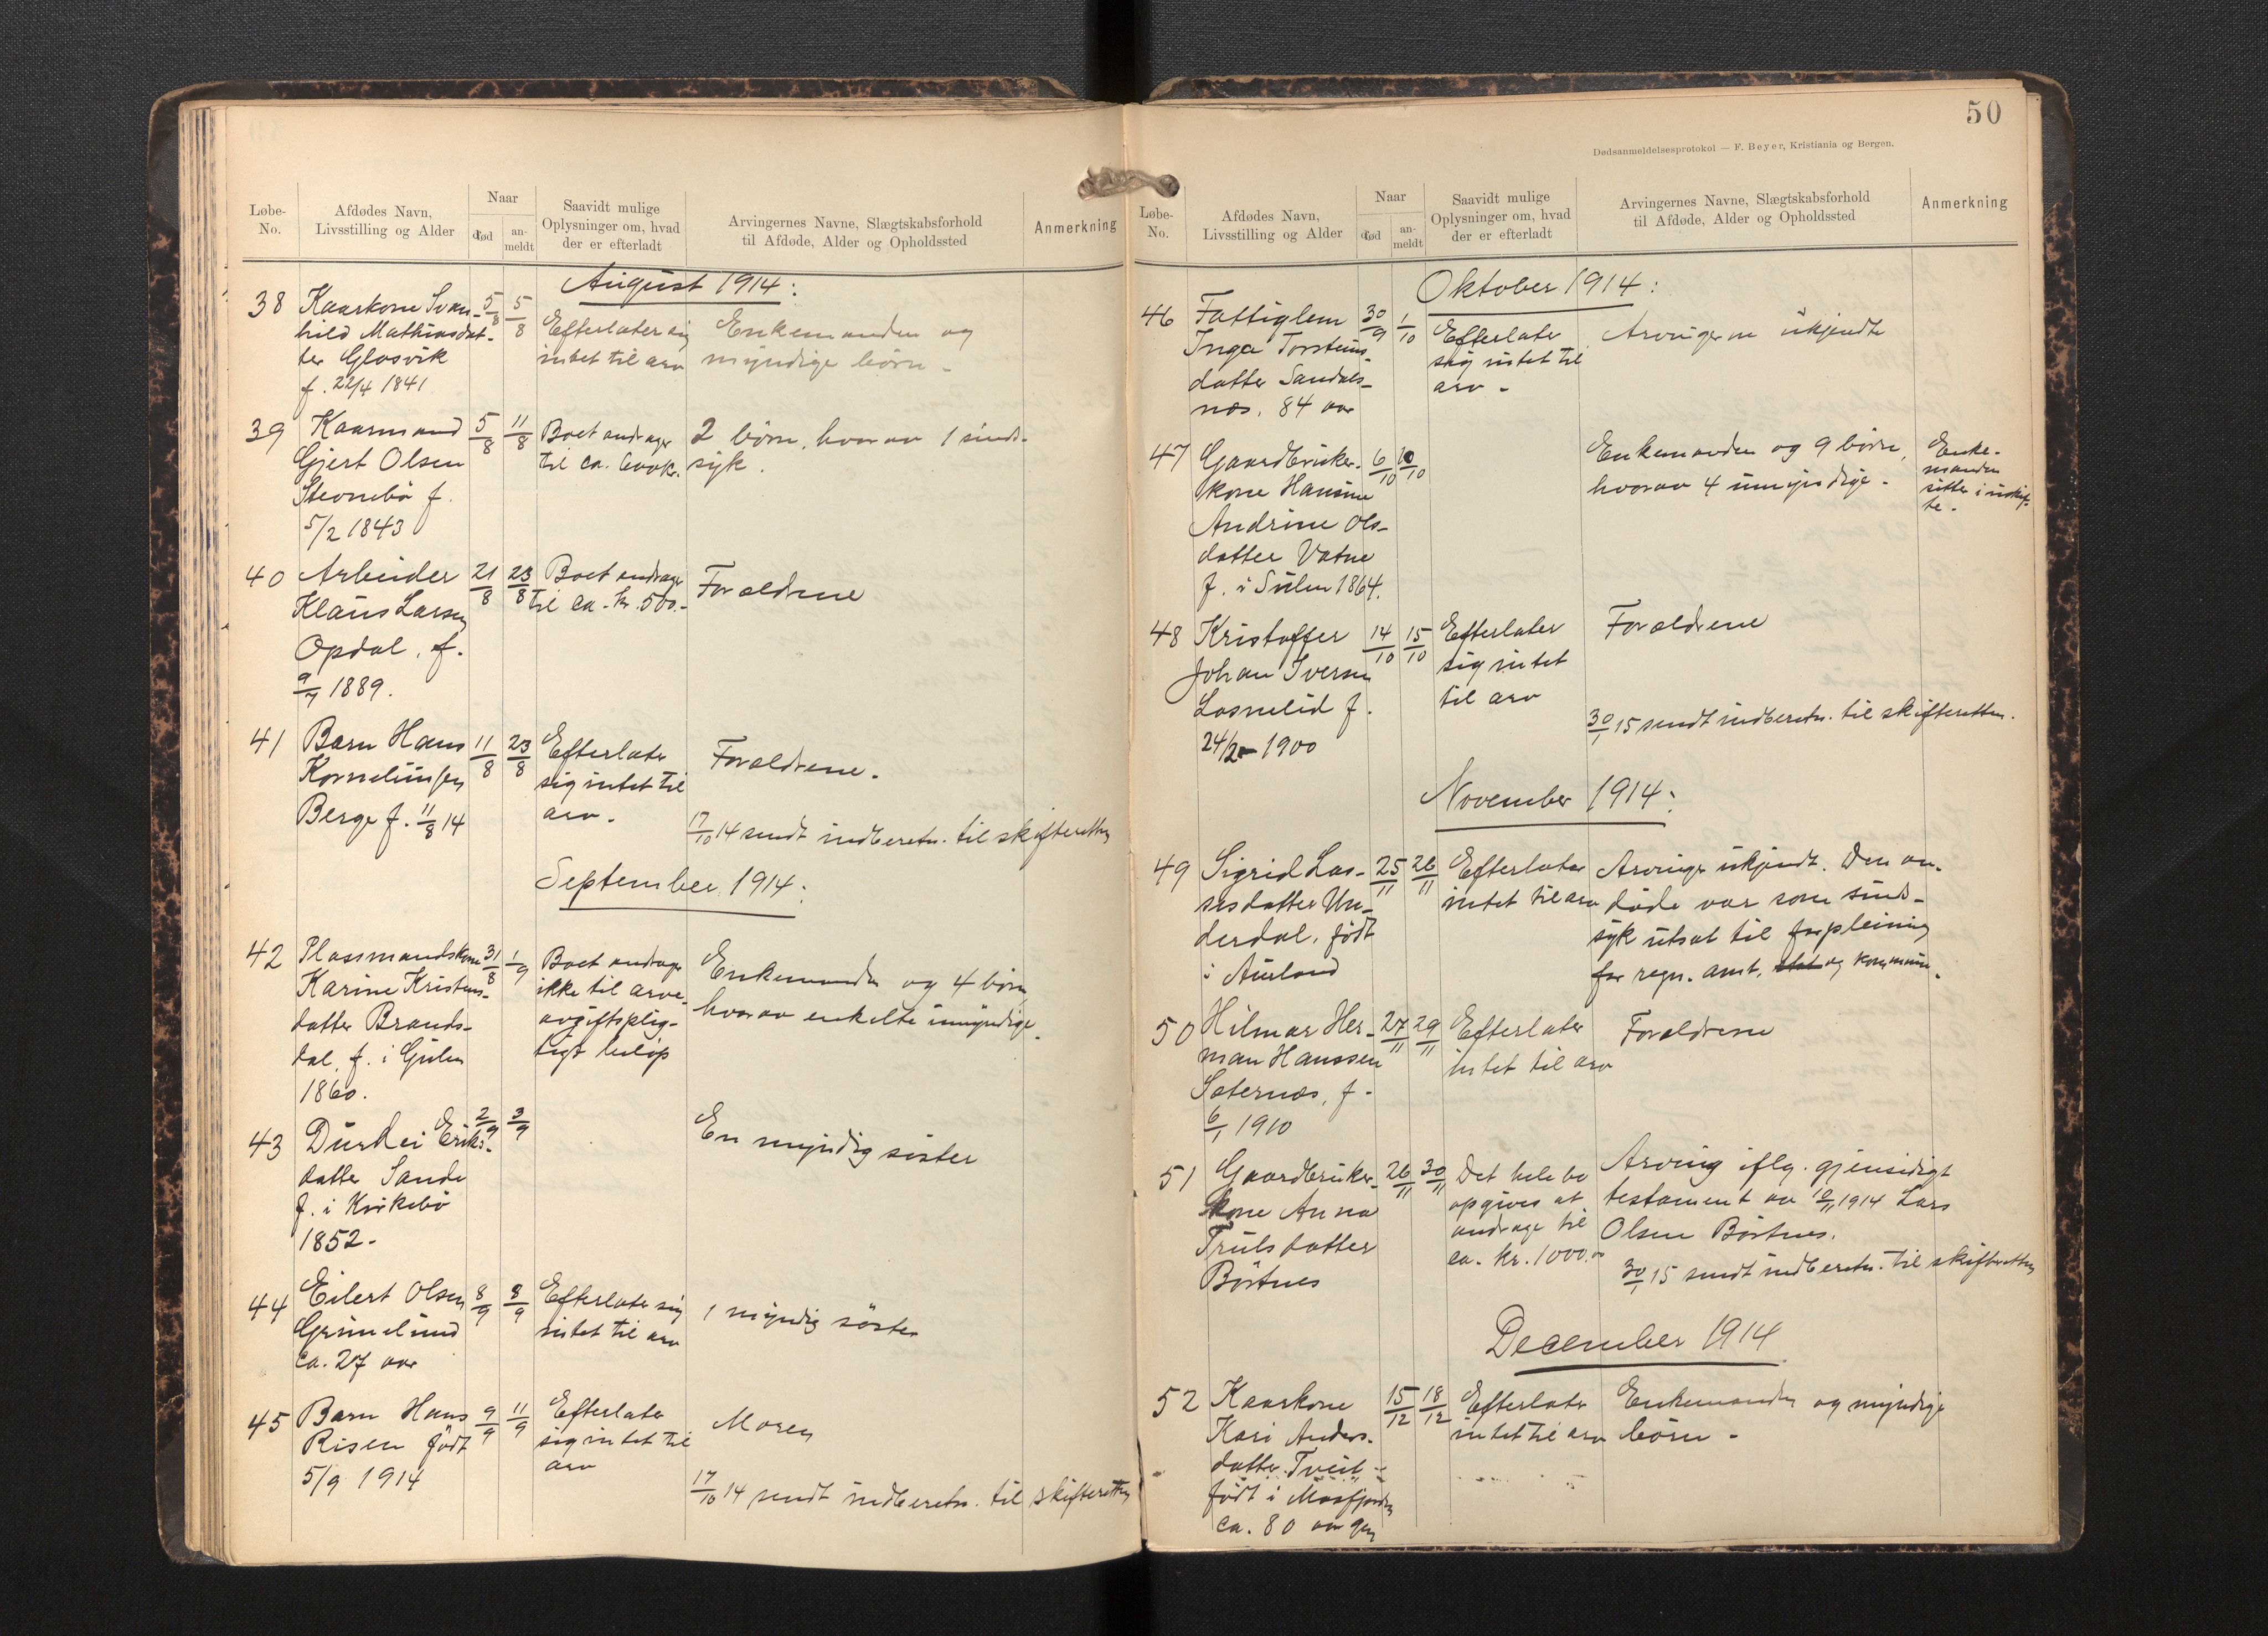 Løbe-
No.
Afdødes Navn,
Livsstilling og Alder
Naar
død
an-
meldt
Saavidt mulige
Oplysninger om, hvad
der er efterladt
Arvingernes Navne, Slægtskabsforhold
til Afdøde, Alder og Opholdssted
Anmerkning
August 1914:
38
Kaarkone Svan-
hild Mathiasdat-
ter Glosvik
f. 22/4 1841
5/8
5/8
Efterlater sig
intet til arv
Enkemanden og
myndige børn -
39
Kaarmand
Gjert Olsen
Stevnebö f.
5/2 1843
5/8
11/8
Boet andrager
til ca. 600 kr.
2 börn, hvorav 1 sinds-
syk.
40
Arbeider
Klaus Larsen
Opdal, f.
9/7 1889.
21/8
23/8
Boet andrager
til ca. kr. 500.-
Forældrene
41
Barn Hans
Korneliussen
Berge f. 11/8 14
11/8
23/8
Efterlater
sig intet til
arv.
Forældrene.
17/10 14 sendt indberetn. til skifteretten
September 1914:
42
Plassmandskone
Karine Kristens-
datter Brands-
dal, f. i Gulen
1860.
31/8
1/9
Boet andrager
ikke til arve-
avgiftsplig-
tigt beløp
Enkemanden og 4 börn,
hvorav enkelte umyndige.
43
Durdei Eriks-
datter Sande
f. i Kirkebö
1852-
2/9
3/9
En myndig söster
44
Eilert Olsen
Grinelund
ca. 27 aar
8/9
8/9
Efterlater sig
intet til arv
1 myndig söster
45
Barn Hans
Risen födt
5/9 1914
9/9
11/9
Efterlater
sig intet til
arv
Moren
17/10 14 sendt indberetn. til skifteretten
50
Dødsanmeldelsesprotokol — F. Beyer, Kristiania og Bergen.
Løbe-
No.
Afdødes Navn,
Livsstilling og Alder
Naar
død
an-
meldt
Saavidt mulige
Oplysninger om, hvad
der er efterladt
Arvingernes Navne, Slægtskabsforhold
til Afdøde, Alder og Opholdssted
Anmerkning
Oktober 1914:
46
Fattiglem
Inga Torsteins-
datter Sandals-
nes, 84 aar
30/9
1/10
Efterlater
sig intet til
arv -
Arvingerne ukjendte
47
Gaardbruker-
kone Hansine
Andrine Ols-
datter Vatne
f. i Sulen 1864.
6/10
10/10
Enkemanden og 9 börn,
hvorav 4 umyndige.
Enke-
manden
sitter i uskif-
te.
48
Kristoffer
Johan Iversen
Losnelid f.
24/2 - 1900
14/10
15/10
Efterlater
sig intet
til arv
Forældrene
30/1 15 sendt indberetn. til skifteretten.
November 1914:
49
Sigrid Las-
sesdatter Un-
derdal, født
i Aurland
25/11
26/11
Efterlater
intet til arv
Arvinger ukjendt. Den av-
döde var som sinds-
syk utsat til forpleining
for regn. amt. og kommun.
50
Hilmar Her-
man Hanssen
Sæternes, f.
6/1 1910
27/11
29/11
Efterlater
intet til arv
Forældrene
51
Gaardbruker-
kone Anna
Trulsdatter
Börtnes
26/11
30/11
Det hele bo
opgives at
andrage til
ca. kr. 1000.00
Arving iflg. gjensidigt
testament av 10/11 1914 Lars
Olsen Börtnes.
30/1 15 sendt indberetn. til skifteretten
December 1914
52
Kaarkone
Kari Anders-
datter Tveit -
født i Masfjorden
ca. 80 aar gl.
15/12
18/12
Efterlater
intet til arv
Enkemanden og myndige
börn -